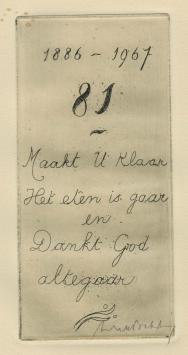 1886 - 1967
81
Maakt U Klaar
Het eten is gaar
en
Dankt God
altegaar